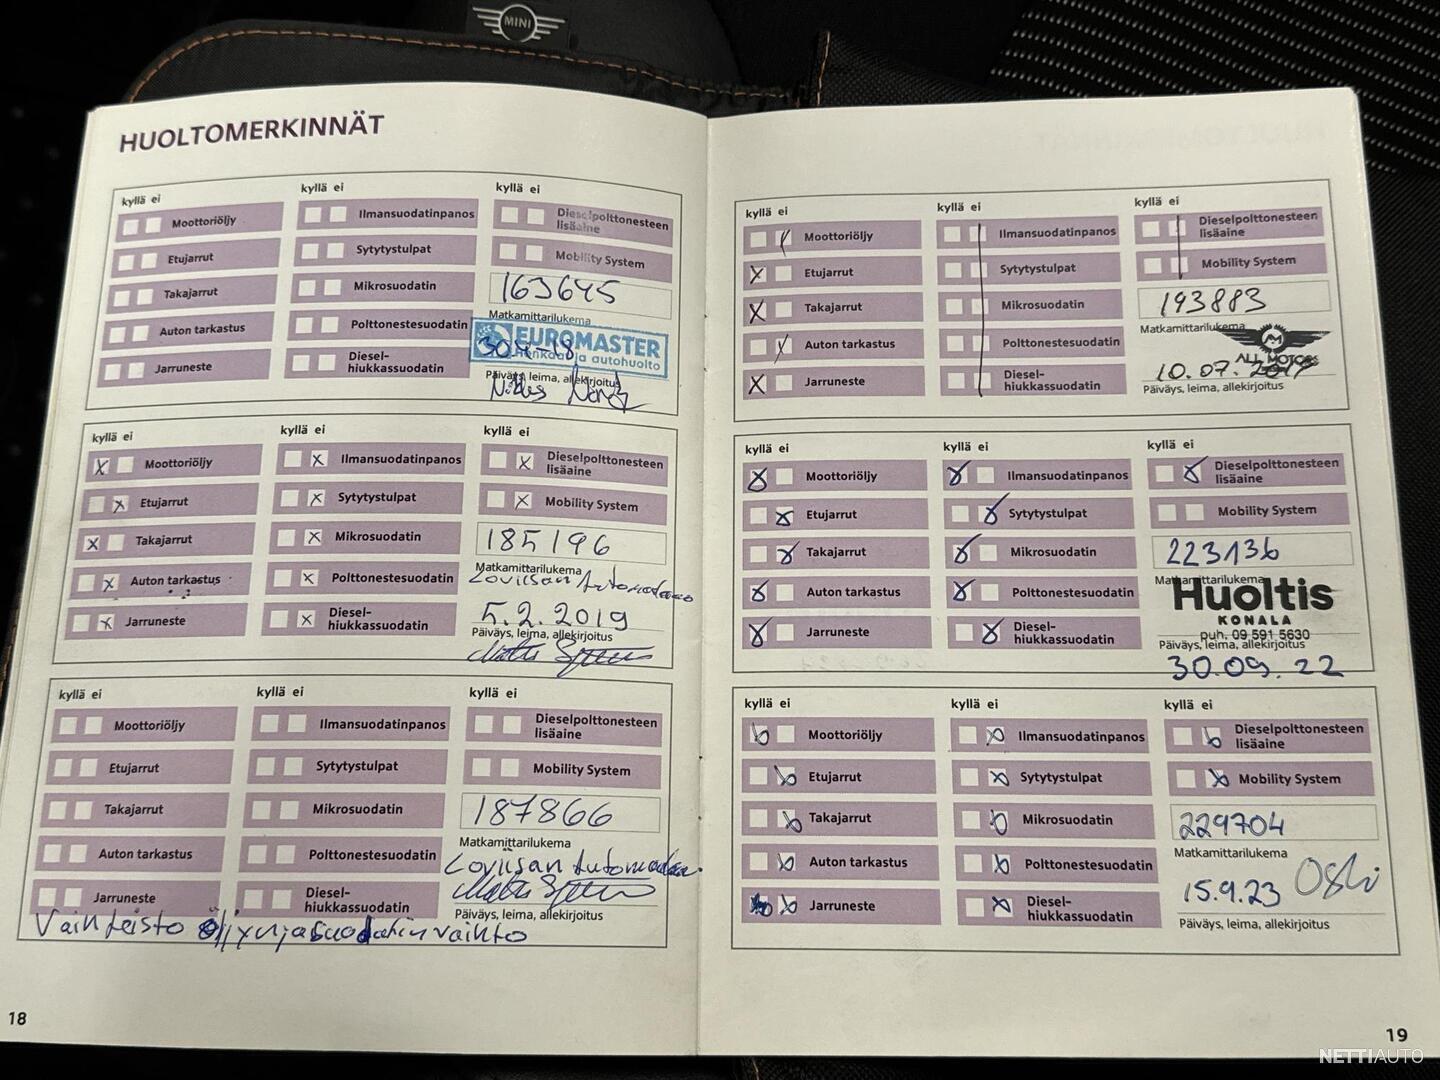 MINI
HUOLTOMERKINNÄT
kyllä ei
kyllä ei
kyllä ei
Moottoriöljy
Ilmansuodatinpanos
Dieselpolttonesteen
lisäaine
Etujarrut
Sytytystulpat
Mobility System
Takajarrut
Mikrosuodatin
163645
Matkamittarilukema
Auton tarkastus
Polttonestesuodatin
EUROMASTER
Jarruneste
Diesel-
hiukkassuodatin
Päiväys, leima, allekirjoitus
kyllä ei
kyllä ei
kyllä ei
X Moottoriöljy
X Ilmansuodatinpanos
X Dieselpolttonesteen
lisäaine
X Etujarrut
X Sytytystulpat
X Mobility System
X Takajarrut
X Mikrosuodatin
185196
Matkamittarilukema
Loviisan
X Auton tarkastus
X Polttonestesuodatin
5.2.2019
X Jarruneste
X Diesel-
hiukkassuodatin
Päiväys, leima, allekirjoitus
kyllä ei
kyllä ei
kyllä ei
Moottoriöljy
Ilmansuodatinpanos
Dieselpolttonesteen
lisäaine
Etujarrut
Sytytystulpat
Mobility System
Takajarrut
Mikrosuodatin
187866
Matkamittarilukema
Auton tarkastus
Polttonestesuodatin
Loviisan
Jarruneste
Diesel-
hiukkassuodatin
Päiväys, leima, allekirjoitus
Vaihteisto öljynjasuodatinvaihto
18
kyllä ei
kyllä ei
kyllä ei
Moottoriöljy
Ilmansuodatinpanos
Dieselpolttonesteen
lisäaine
X Etujarrut
Sytytystulpat
Mobility System
X Takajarrut
Mikrosuodatin
193883
Matkamittarilukema
Auton tarkastus
Polttonestesuodatin
ALL MOTORS
X Jarruneste
Diesel-
hiukkassuodatin
10.07.2019
Päiväys, leima, allekirjoitus
kyllä ei
kyllä ei
kyllä ei
X Moottoriöljy
X Ilmansuodatinpanos
X Dieselpolttonesteen
lisäaine
X Etujarrut
X Sytytystulpat
Mobility System
X Takajarrut
X Mikrosuodatin
223136
Matkamittarilukema
X Auton tarkastus
X Polttonestesuodatin
Huoltis
KONALA
X Jarruneste
X Diesel-
hiukkassuodatin
puh. 09 591 5630
Päiväys, leima, allekirjoitus
30.09.22
kyllä ei
kyllä ei
kyllä ei
Moottoriöljy
Ilmansuodatinpanos
Dieselpolttonesteen
lisäaine
Etujarrut
Sytytystulpat
Mobility System
Takajarrut
Mikrosuodatin
229704
Matkamittarilukema
Auton tarkastus
Polttonestesuodatin
15.9.23
Jarruneste
Diesel-
hiukkassuodatin
Päiväys, leima, allekirjoitus
19
NETTIAUTO